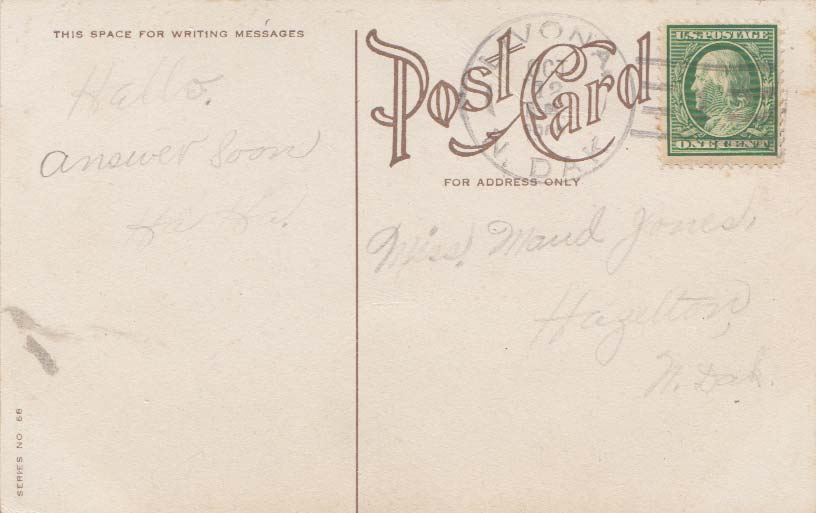 THIS SPACE FOR WRITING MESSAGES
Hello.
answer soon
Post Card
FOR ADDRESS ONLY
WINONA
OCT
12
N. DAK
U.S. POSTAGE
ONE CENT
Miss. Maud Jones.
Hazelton,
N. Dak.
SERIES NO. 68